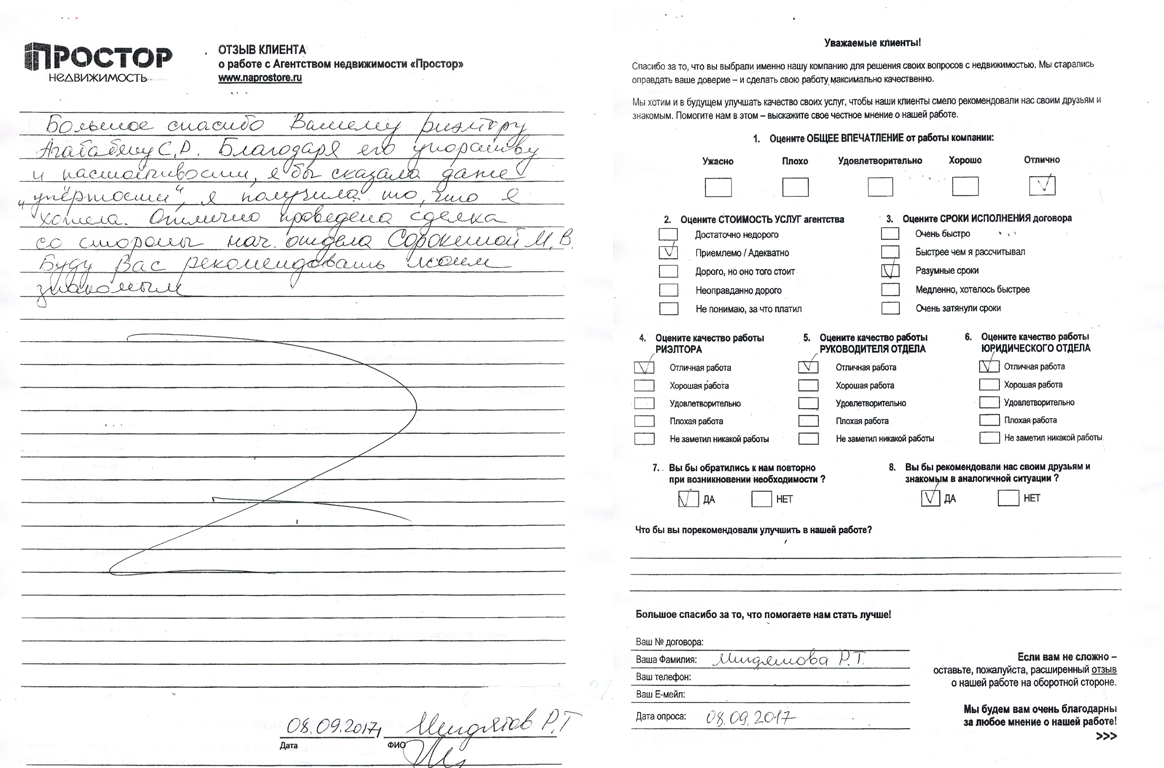 ПРОСТОР
НЕДВИЖИМОСТЬ
ОТЗЫВ КЛИЕНТА
о работе с Агентством недвижимости «Простор»
www.naprostore.ru
Большое спасибо Вашему риэлтору
Агабабяну С.Р. Благодаря его упорству
и настойчивости, я бы сказала даже
"упёртости", я получила то, что я
хотела. Отлично проведена сделка
со стороны нач. отдела Сорокиной М.В.
Буду Вас рекомендовать своим
знакомым
08.09.2017,
Дата
ФИО
Уважаемые клиенты!
Спасибо за то, что вы выбрали именно нашу компанию для решения своих вопросов с недвижимостью. Мы старались
оправдать ваше доверие – и сделать свою работу максимально качественно.
Мы хотим и в будущем улучшать качество своих услуг, чтобы наши клиенты смело рекомендовали нас своим друзьям и
знакомым. Помогите нам в этом – выскажите свое честное мнение о нашей работе.
1. Оцените ОБЩЕЕ ВПЕЧАТЛЕНИЕ от работы компании:
Ужасно Плохо Удовлетворительно Хорошо Отлично
2. Оцените СТОИМОСТЬ УСЛУГ агентства
Достаточно недорого
Приемлемо / Адекватно
Дорого, но оно того стоит
Неоправданно дорого
Не понимаю, за что платил
3. Оцените СРОКИ ИСПОЛНЕНИЯ договора
Очень быстро
Быстрее чем я рассчитывал
Разумные сроки
Медленно, хотелось быстрее
Очень затянули сроки
4. Оцените качество работы
РИЭЛТОРА
Отличная работа
Хорошая работа
Удовлетворительно
Плохая работа
Не заметил никакой работы
5. Оцените качество работы
РУКОВОДИТЕЛЯ ОТДЕЛА
Отличная работа
Хорошая работа
Удовлетворительно
Плохая работа
Не заметил никакой работы
6. Оцените качество работы
ЮРИДИЧЕСКОГО ОТДЕЛА
Отличная работа
Хорошая работа
Удовлетворительно
Плохая работа
Не заметил никакой работы
7. Вы бы обратились к нам повторно
при возникновении необходимости ?
ДА НЕТ
8. Вы бы рекомендовали нас своим друзьям и
знакомым в аналогичной ситуации ?
ДА НЕТ
Что бы вы порекомендовали улучшить в нашей работе?
Большое спасибо за то, что помогаете нам стать лучше!
Ваш № договора:
Ваша Фамилия: Р.Т.
Ваш телефон:
Ваш Е-мейл:
Дата опроса: 08.09.2017
Если вам не сложно –
оставьте, пожалуйста, расширенный отзыв
о нашей работе на оборотной стороне.
Мы будем вам очень благодарны
за любое мнение о нашей работе!
>>>